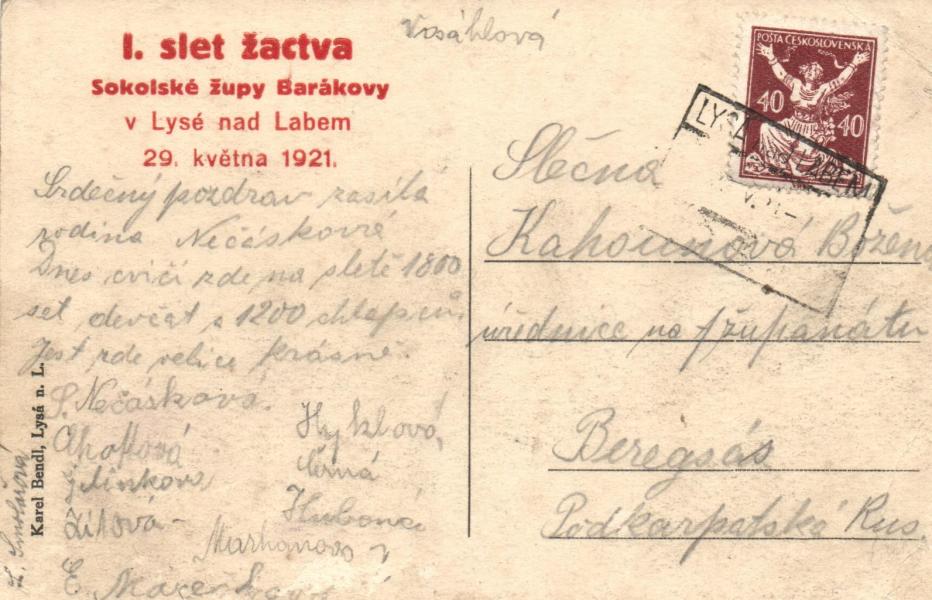 I. slet žactva
Sokolské župy Barákovy
v Lysé nad Labem
29. května 1921.
Vosáhlová
POŠTA ČESKOSLOVENSKÁ
40 40
LYSÁ nad LABEM
Srdečný pozdrav zasílá
rodina Nečáskova
Dnes cvičí zde na sletě 1800
set děvčat a 1200 chlapců.
Jest zde velice krásně.
S. Nečáskova.
Jelínkova
Žitová
Hyklová,
Černá
E.
Slečna
Kahounová Božena
úřednice na župenátu
Beregsás
Podkarpatská Rus.
Karel Bendl, Lysá n. L.